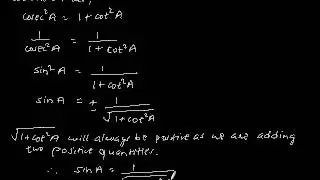 cosec²A = 1 + cot²A
1/cosec²A = 1/(1 + cot²A)
sin²A = 1/(1 + cot²A)
sin A = ± 1/√(1 + cot²A)
√(1+cot²A) will always be positive as we are adding
two positive quantities.
∴ sin A = 1/